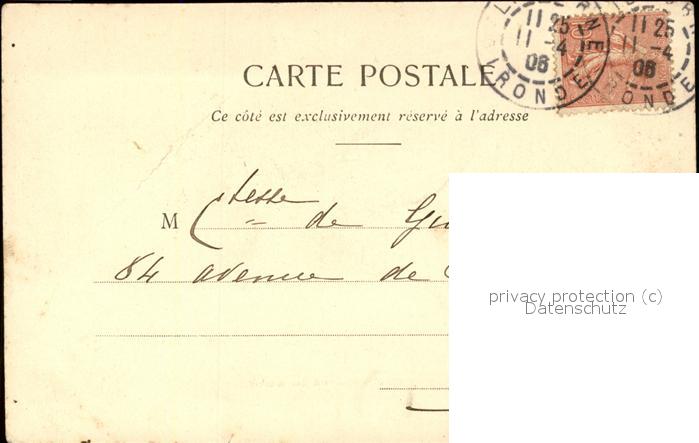 11 25
11 25
11 -4
11 -4
06
06
GIRONDE
RONDE
CARTE POSTALE
Ce côté est exclusivement réservé à l'adresse
M Ctesse de
84 avenue de
privacy protection (c)
Datenschutz